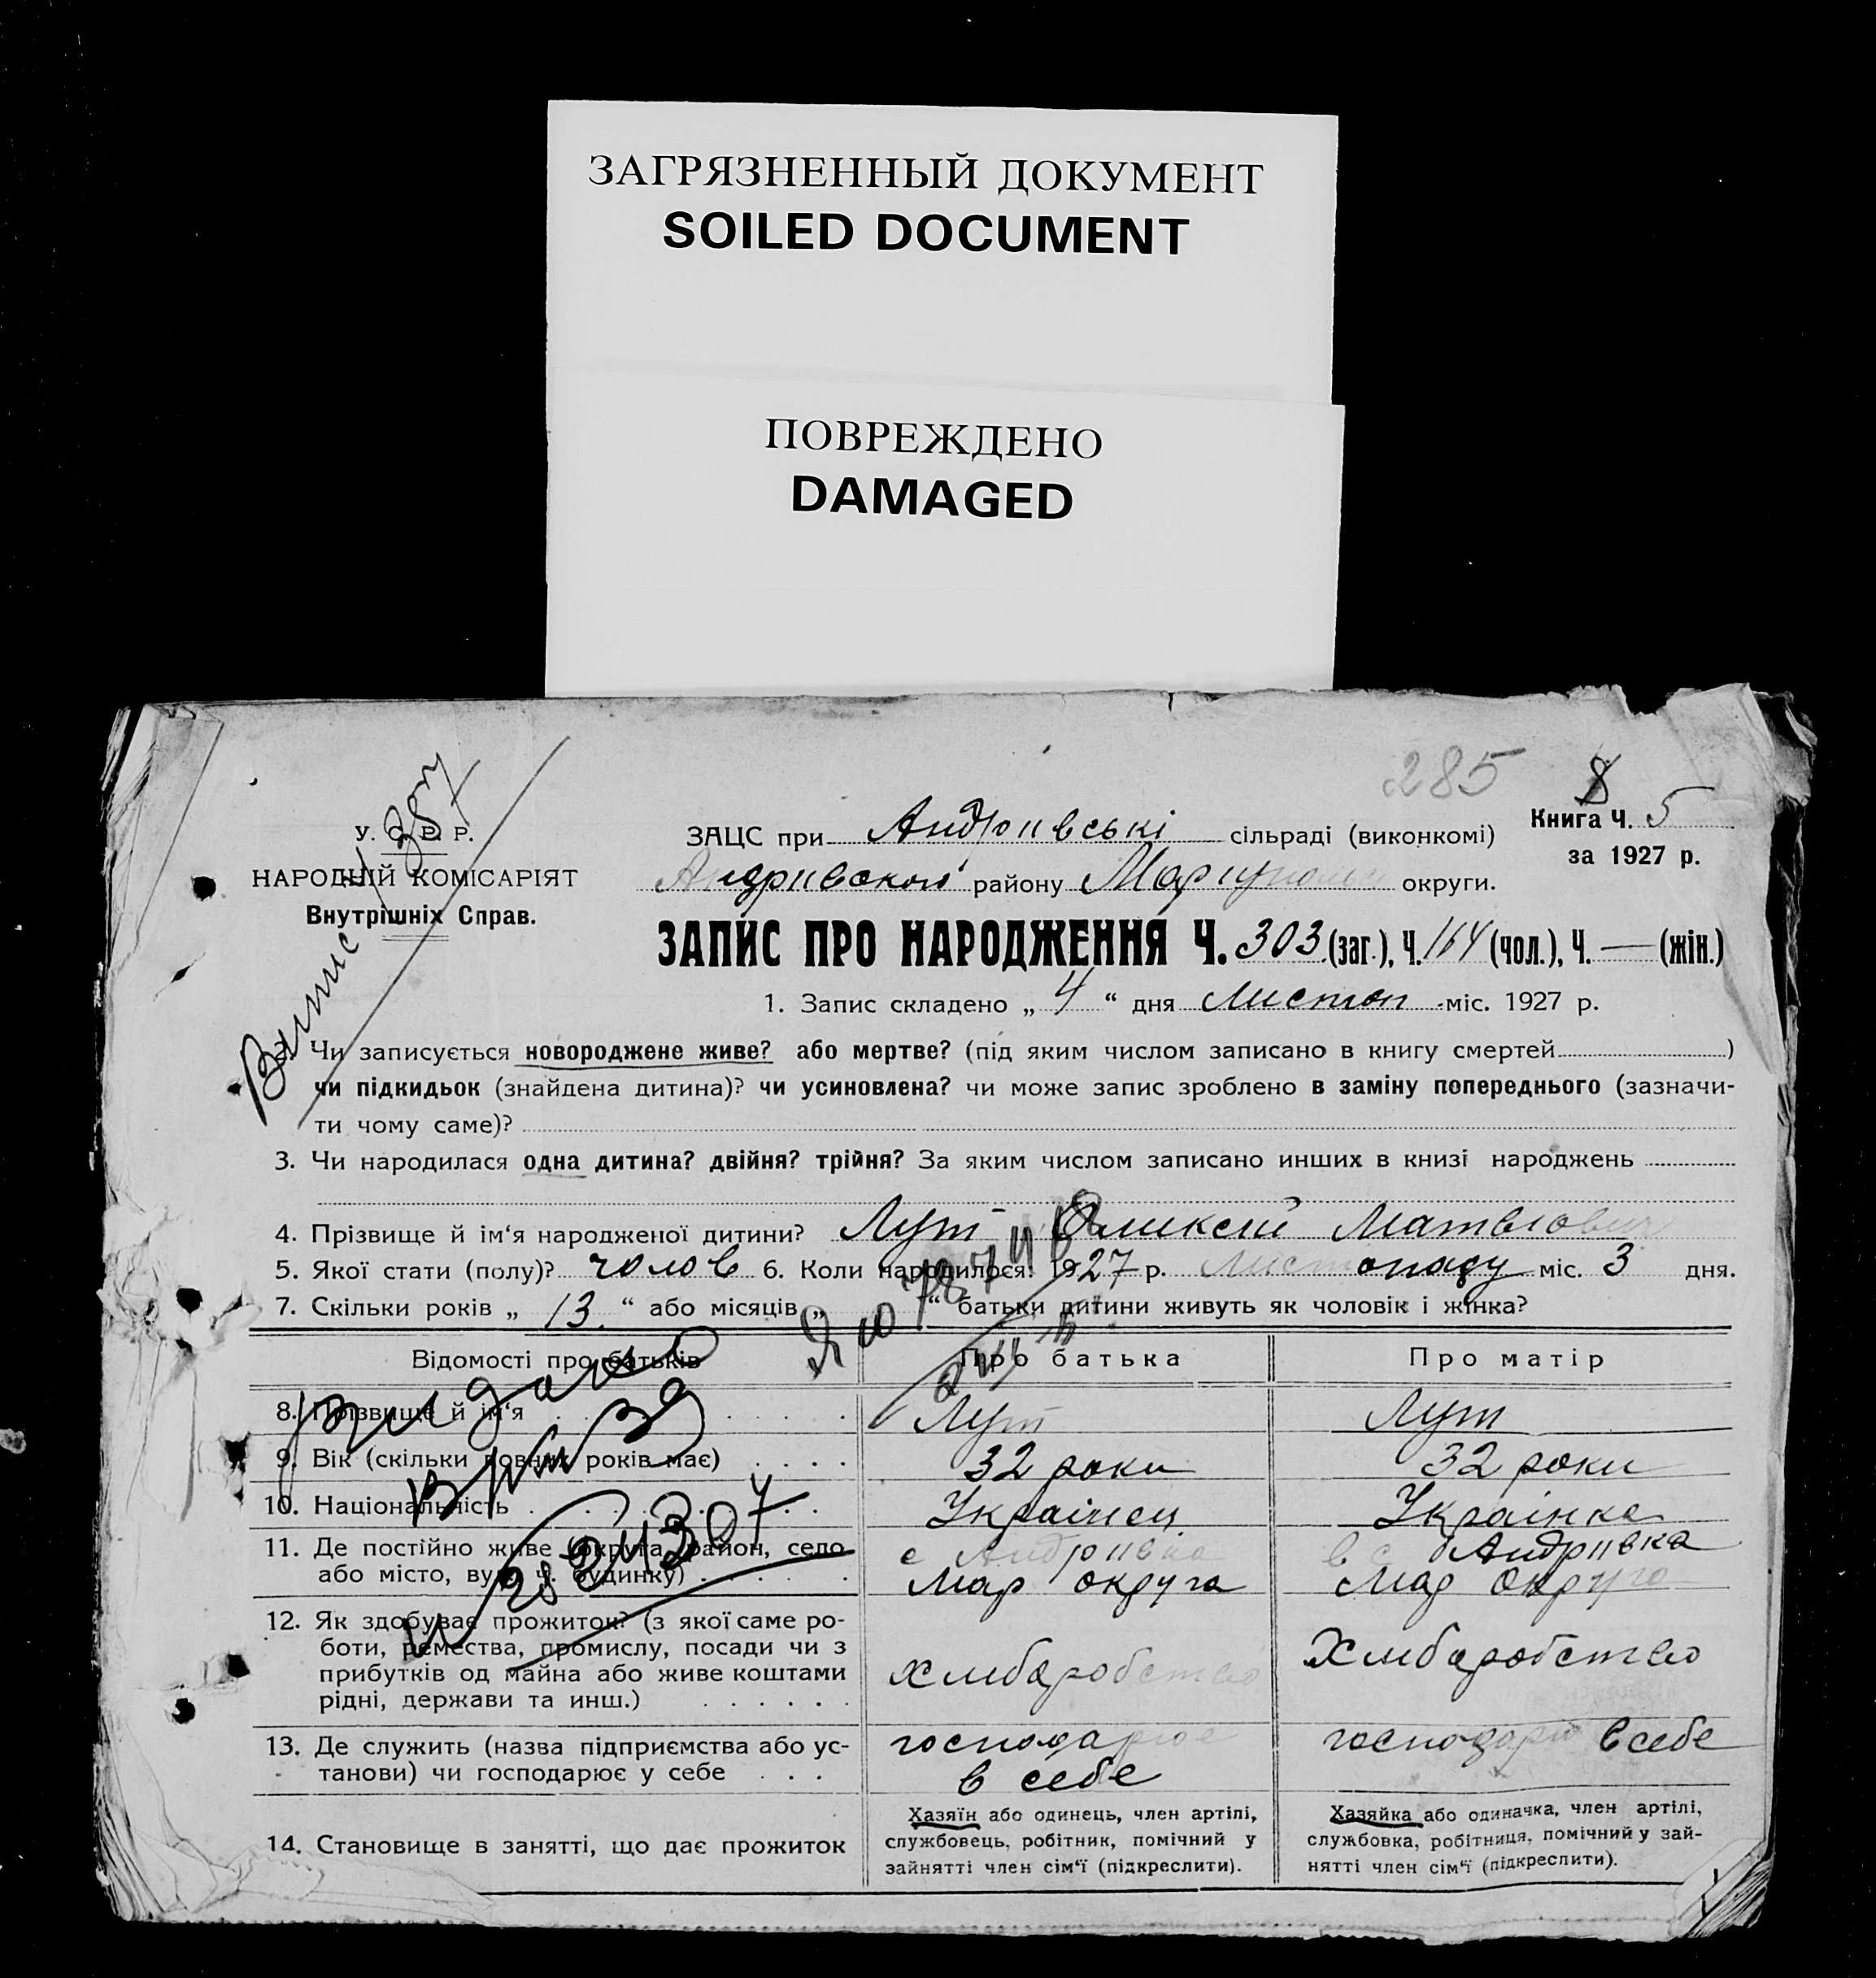 ЗАГРЯЗНЕННЫЙ ДОКУМЕНТ
SOILED DOCUMENT
ПОВРЕЖДЕНО
DAMAGED
285
8
Книга Ч. 5
за 1927 р.
У. С. Р. Р.
НАРОДНІЙ КОМІСАРІЯТ
Внутрішніх Справ.
Випис
ЗАЦС при Андріивські сільраді (виконкомі)
Андривської району Маріуполь округи.
ЗАПИС ПРО НАРОДЖЕННЯ Ч. 303 (заг.), Ч. 164 (чол.), Ч. — (жін.)
1. Запис складено „ 4 “ дня листоп міс. 1927 р.
Чи записується новороджене живе? або мертве? (під яким числом записано в книгу смертей )
чи підкидьок (знайдена дитина)? чи усиновлена? чи може запис зроблено в заміну попереднього (зазначи-
ти чому саме)?
3. Чи народилася одна дитина? двійня? трійня? За яким числом записано инших в книзі народжень
4. Прізвище й ім‘я народженої дитини? Лут Оликсій Матвіович
5. Якої стати (полу)? чолов 6. Коли народилося: 1927 р. Листопаду міс. 3 дня.
7. Скільки років „ 13 “ або місяців „ “ батьки дитини живуть як чоловік і жінка?
Відомості про батьків Про батька Про матір
8. Прізвище й ім‘я Лут Лут
9. Вік (скільки повних років має) 32 роки 32 роки
10. Національність Українец Українка
11. Де постійно живе (округа, район, село с Андріивка в с Андріивка
або місто, вул. ч. будинку) Мар округа Мар округа
12. Як здобуває прожиток? (з якої саме ро-
боти, ремества, промислу, посади чи з
прибутків од майна або живе коштами
рідні, держави та инш.) хлибаробство Хлибаробство
13. Де служить (назва підприємства або ус- господарюе господарю в себе
танови) чи господарює у себе в себе
14. Становище в занятті, що дає прожиток
Хазяїн або одинець, член артілі,
службовець, робітник, помічний у
зайнятті член сім‘ї (підкреслити).
Хазяйка або одиначка, член артілі,
службовка, робітниця, помічний у зай-
нятті член сім‘ї (підкреслити).